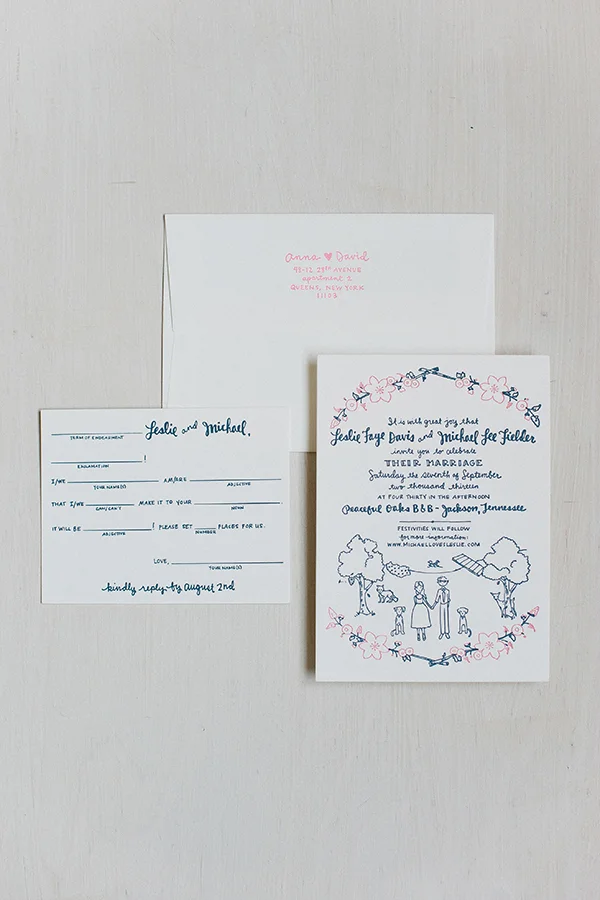 Anna ♥ David
93-12 29TH AVENUE
apartment 2
QUEENS, NEW YORK
11103
Leslie and Michael,
TERM OF ENDEARMENT
!
EXCLAMATION
I/WE AM/ARE
YOUR NAME(S) ADJECTIVE
THAT I/WE MAKE IT TO YOUR .
CAN/CAN'T NOUN
IT WILL BE ! PLEASE SET PLACES FOR US.
ADJECTIVE NUMBER
LOVE,
YOUR NAME(S)
kindly reply by August 2nd
It is with great joy that
Leslie Faye Davis and Michael Lee Fielder
invite you to celebrate
THEIR MARRIAGE
Saturday the seventh of September
two thousand thirteen
AT FOUR THIRTY IN THE AFTERNOON
Peaceful Oaks B&B - Jackson, Tennessee
FESTIVITIES WILL FOLLOW
for more information:
WWW.MICHAELLOVESLESLIE.COM